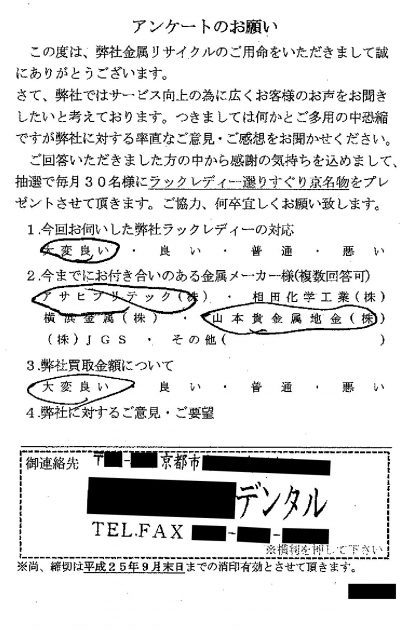 アンケートのお願い
この度は、弊社金属リサイクルのご用命をいただきまして誠
にありがとうございます。
さて、弊社ではサービス向上の為に広くお客様のお声をお聞き
したいと考えております。つきましては何かとご多用の中恐縮
ですが弊社に対する率直なご意見・ご感想をお聞かせください。
ご回答いただきました方の中から感謝の気持ちを込めまして、
抽選で毎月30名様にラックレディー選りすぐり京名物をプレ
ゼントさせて頂きます。ご協力、何卒宜しくお願い致します。
1.今回お伺いした弊社ラックレディーの対応
大変良い ・ 良い ・ 普通 ・ 悪い
2.今までにお付き合いのある金属メーカー様(複数回答可)
アサヒプリテック(株) ・ 相田化学工業(株)
横浜金属(株) ・ 山本貴金属地金(株)
(株)JGS ・ その他( )
3.弊社買取金額について
大変良い ・ 良い ・ 普通 ・ 悪い
4.弊社に対するご意見・ご要望
御連絡先 〒 - 京都市
デンタル
TEL.FAX - -
を押して下さい
※尚、締切は平成25年9月末日までの消印有効とさせて頂きます。